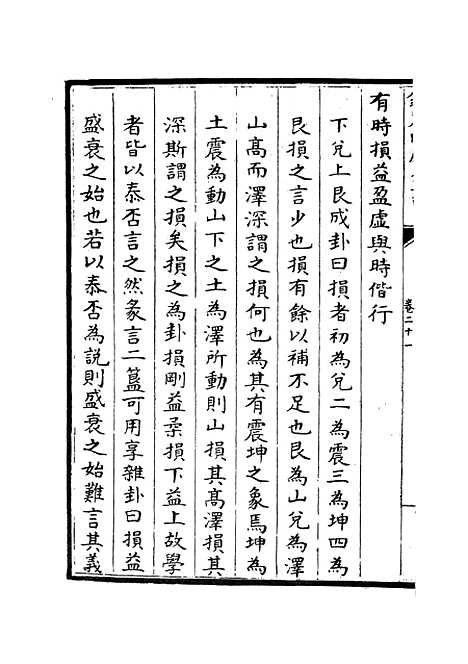 有時損益盈虛與時偕行
下兌上艮成卦曰損者初為兌二為震三為坤四為
艮損之言少也損有餘以補不足也艮為山兌為澤
山高而澤深謂之損何也為其有震坤之象焉坤為
土震為動山下之土為澤所動則山損其高澤損其
深斯謂之損矣損之為卦損剛益柔損下益上故學
者皆以泰否言之然彖言二簋可用享雜卦曰損益
盛衰之始也若以泰否為說則盛衰之始難言其義
卷二十一